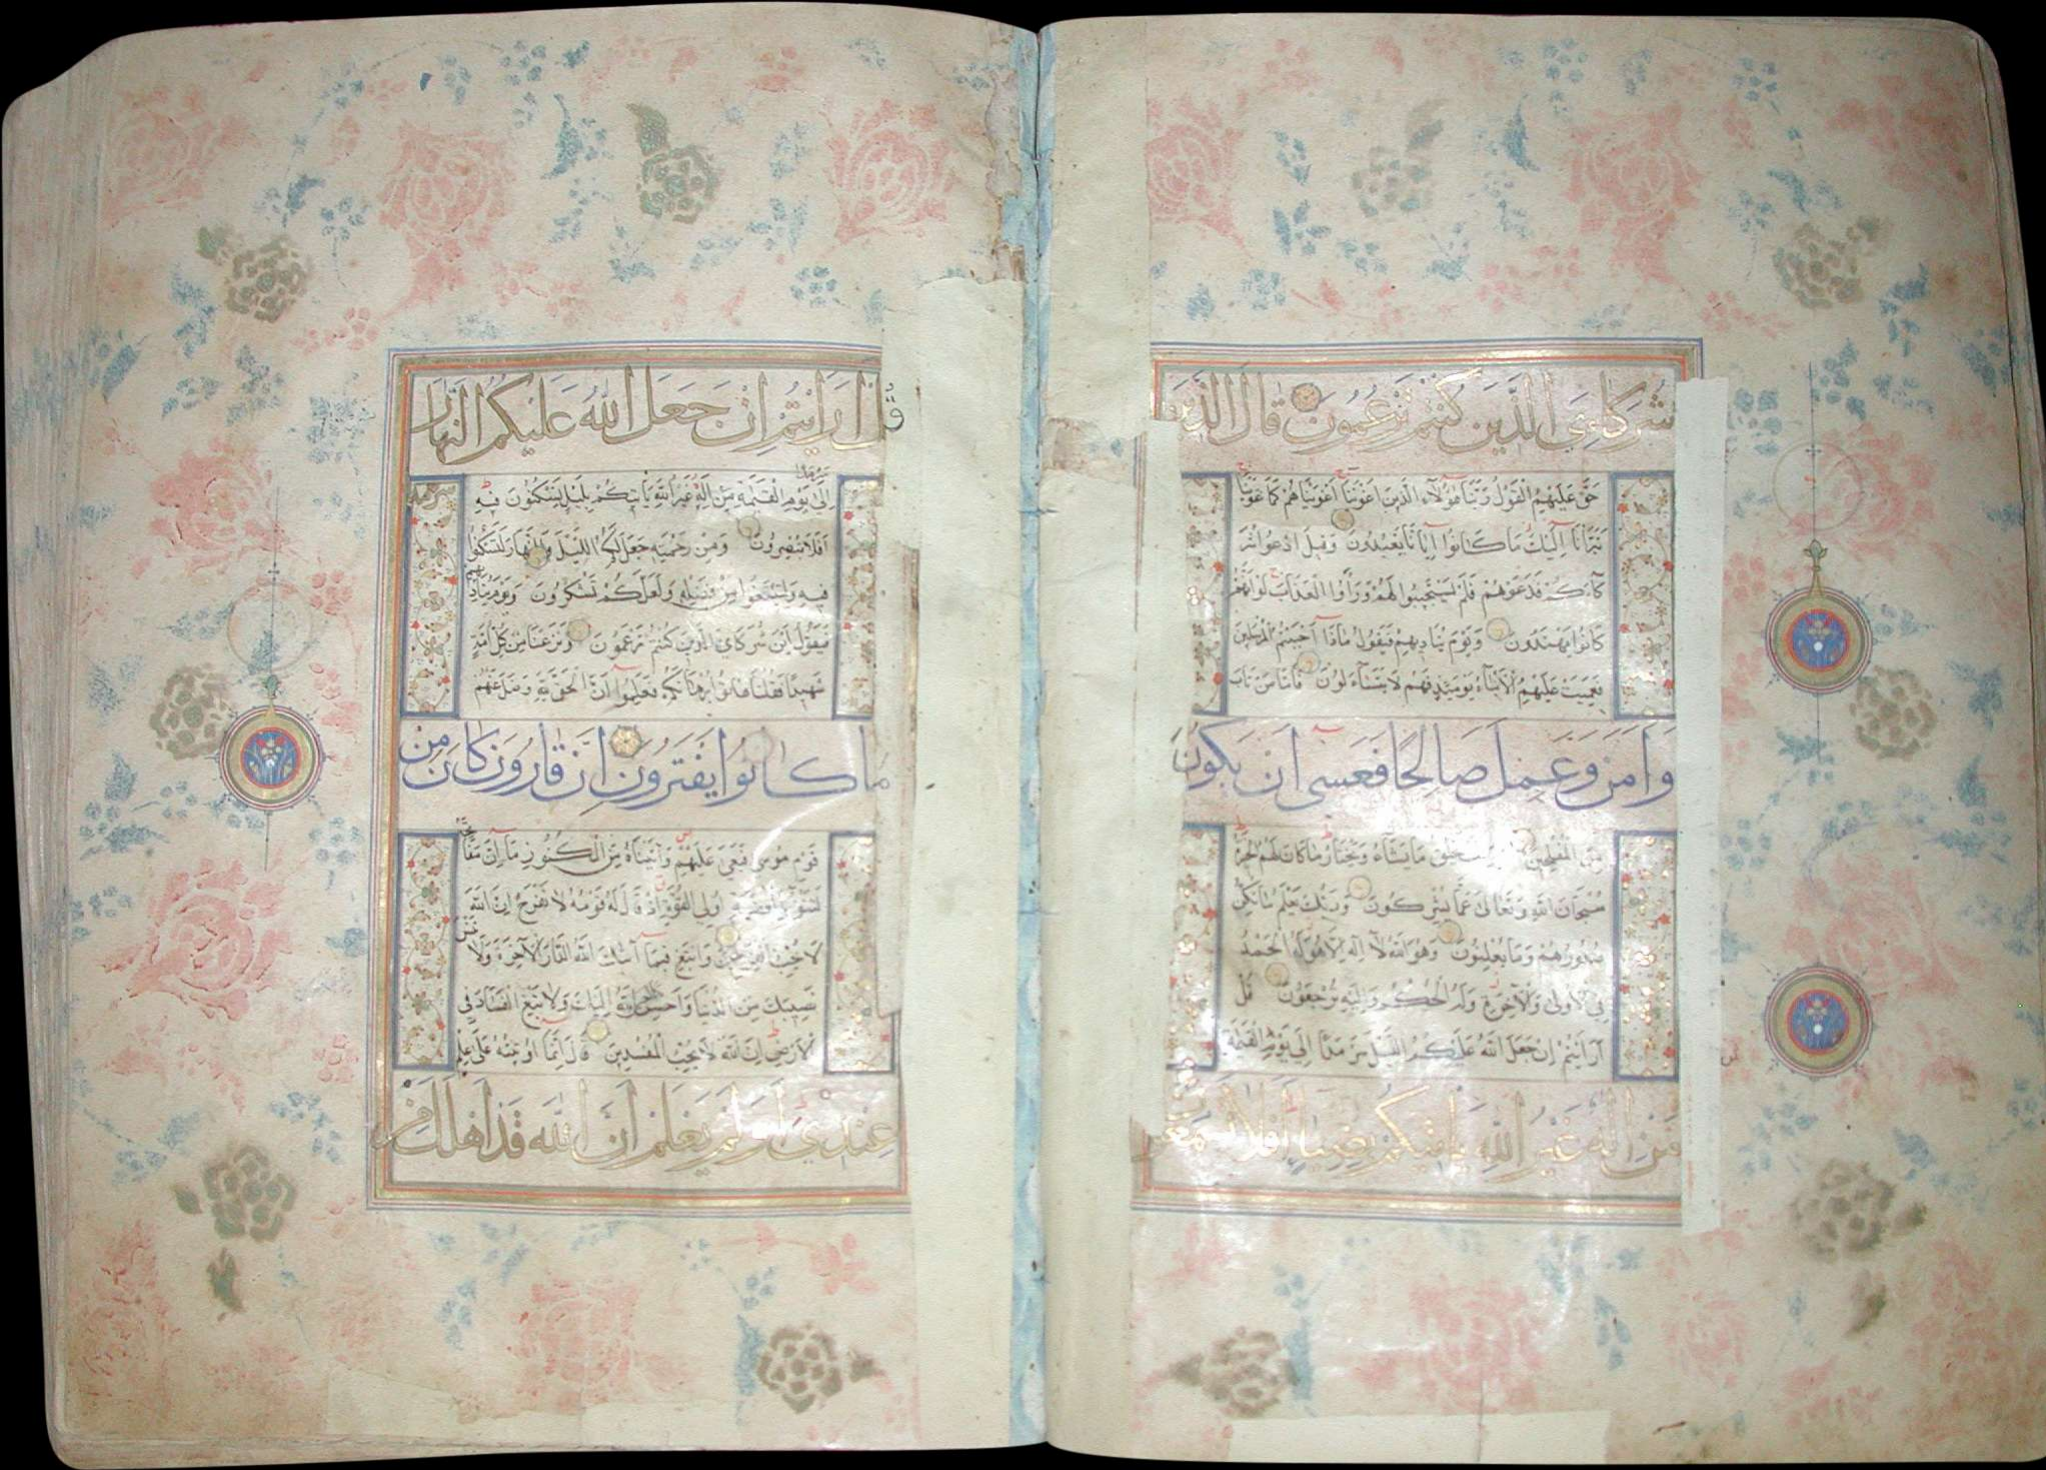 شُرَكَاءِيَ الَّذِينَ كُنْتُمْ تَزْعُمُونَ قَالَ الَّذِينَ
حَقَّ عَلَيْهِمُ الْقَوْلُ رَبَّنَا هَؤُلَآءِ الَّذِينَ اَغْوَيْنَا اَغْوَيْنَاهُمْ كَمَا غَوَيْنَا
تَبَرَّأْنَا اِلَيْكَ مَا كَانُوا اِيَّانَا يَعْبُدُونَ وَقِيلَ ادْعُوا شُرَ
كَآءَكُمْ فَدَعَوْهُمْ فَلَمْ يَسْتَجِيبُوا لَهُمْ وَرَاَوُا الْعَذَابَ لَوْ اَنَّهُمْ
كَانُوا يَهْتَدُونَ وَيَوْمَ يُنَادِيهِمْ فَيَقُولُ مَاذَا اَجَبْتُمُ الْمُرْسَلِينَ
فَعَمِيَتْ عَلَيْهِمُ الْاَنْبَآءُ يَوْمَئِذٍ فَهُمْ لَا يَتَسَآءَلُونَ فَاَمَّا مَنْ تَابَ
وَاٰمَنَ وَعَمِلَ صَالِحًا فَعَسٰى اَنْ يَكُونَ
مِنَ الْمُفْلِحِينَ يَخْلُقُ مَا يَشَآءُ وَيَخْتَارُ مَا كَانَ لَهُمُ الْخِيَرَةُ
سُبْحَانَ اللّٰهِ وَتَعَالٰى عَمَّا يُشْرِكُونَ وَرَبُّكَ يَعْلَمُ مَا تُكِنُّ
صُدُورُهُمْ وَمَا يُعْلِنُونَ وَهُوَ اللّٰهُ لَآ اِلٰهَ اِلَّا هُوَ لَهُ الْحَمْدُ
فِي الْاُولٰى وَالْاٰخِرَةِ وَلَهُ الْحُكْمُ وَاِلَيْهِ تُرْجَعُونَ قُلْ
اَرَاَيْتُمْ اِنْ جَعَلَ اللّٰهُ عَلَيْكُمُ اللَّيْلَ سَرْمَدًا اِلٰى يَوْمِ الْقِيٰمَةِ
مَنْ اِلٰهٌ غَيْرُ اللّٰهِ يَاْتِيكُمْ بِضِيَاءٍ اَفَلَا تَسْمَعُونَ
قُلْ اَرَاَيْتُمْ اِنْ جَعَلَ اللّٰهُ عَلَيْكُمُ النَّهَارَ
سَرْمَدًا
اِلٰى يَوْمِ الْقِيٰمَةِ مَنْ اِلٰهٌ غَيْرُ اللّٰهِ يَاْتِيكُمْ بِلَيْلٍ تَسْكُنُونَ فِيهِ
اَفَلَا تُبْصِرُونَ وَمِنْ رَحْمَتِهِ جَعَلَ لَكُمُ اللَّيْلَ وَالنَّهَارَ لِتَسْكُنُوا
فِيهِ وَلِتَبْتَغُوا مِنْ فَضْلِهِ وَلَعَلَّكُمْ تَشْكُرُونَ وَيَوْمَ يُنَادِيهِمْ
فَيَقُولُ اَيْنَ شُرَكَآئِيَ الَّذِينَ كُنْتُمْ تَزْعُمُونَ وَنَزَعْنَا مِنْ كُلِّ اُمَّةٍ
شَهِيدًا فَقُلْنَا هَاتُوا بُرْهَانَكُمْ فَعَلِمُوا اَنَّ الْحَقَّ لِلّٰهِ وَضَلَّ عَنْهُمْ
مَا كَانُوا يَفْتَرُونَ اِنَّ قَارُونَ كَانَ مِنْ
قَوْمِ مُوسٰى فَبَغٰى عَلَيْهِمْ وَاٰتَيْنَاهُ مِنَ الْكُنُوزِ مَآ اِنَّ مَفَاتِحَهُ
لَتَنُوٓاُ بِالْعُصْبَةِ اُولِي الْقُوَّةِ اِذْ قَالَ لَهُ قَوْمُهُ لَا تَفْرَحْ اِنَّ اللّٰهَ
لَا يُحِبُّ الْفَرِحِينَ وَابْتَغِ فِيمَآ اٰتٰىكَ اللّٰهُ الدَّارَ الْاٰخِرَةَ وَلَا تَنْسَ
نَصِيبَكَ مِنَ الدُّنْيَا وَاَحْسِنْ اللّٰهُ اِلَيْكَ وَلَا تَبْغِ الْفَسَادَ فِي
الْاَرْضِ اِنَّ اللّٰهَ لَا يُحِبُّ الْمُفْسِدِينَ قَالَ اِنَّمَآ اُوتِيتُهُ عَلٰى عِلْمٍ
عِنْدِي اَوَلَمْ يَعْلَمْ اَنَّ اللّٰهَ قَدْ اَهْلَكَ مِنْ